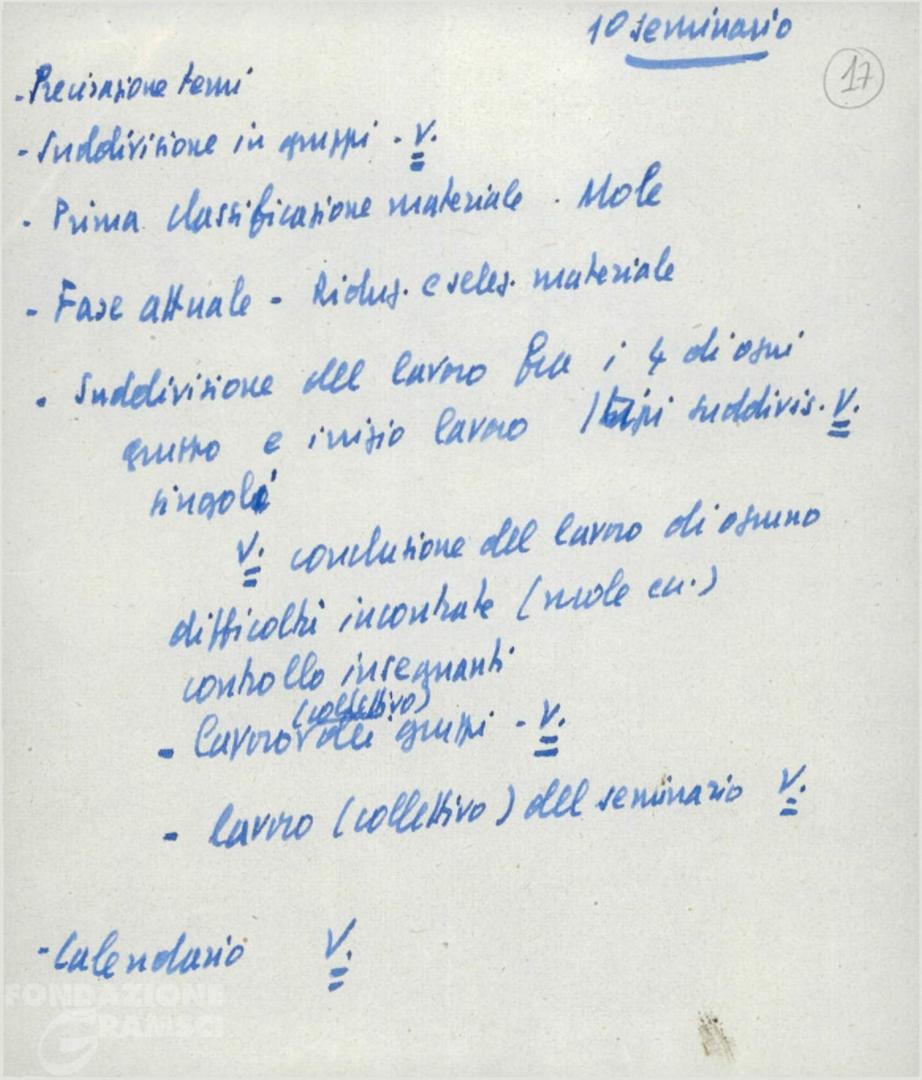 1º seminario
17
- Precisazione temi
- Suddivisione in gruppi - V.
- Prima classificazione materiale - Mole
- Fase attuale - Riduz. e selez. materiale
- Suddivisione del lavoro fra i 4 di ogni
gruppo e inizio lavoro suddivis. V.
singoli
V. conclusione del lavoro di ognuno
difficoltà incontrate (mole ecc.)
controllo insegnanti
(collettivo)
- lavoro dei gruppi - V.
- lavoro (collettivo) del seminario V.
- Calendario V.
FONDAZIONE
GRAMSCI